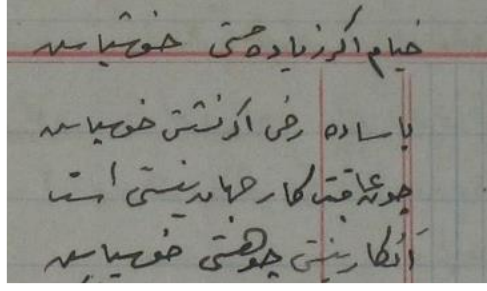 خیام اگر ز باده مستی خوش باش
با ساده رخی اگر نشستی خوش باش
چون عاقبت کار جهان نیستی است
انگار نیستی چو هستی خوش باش